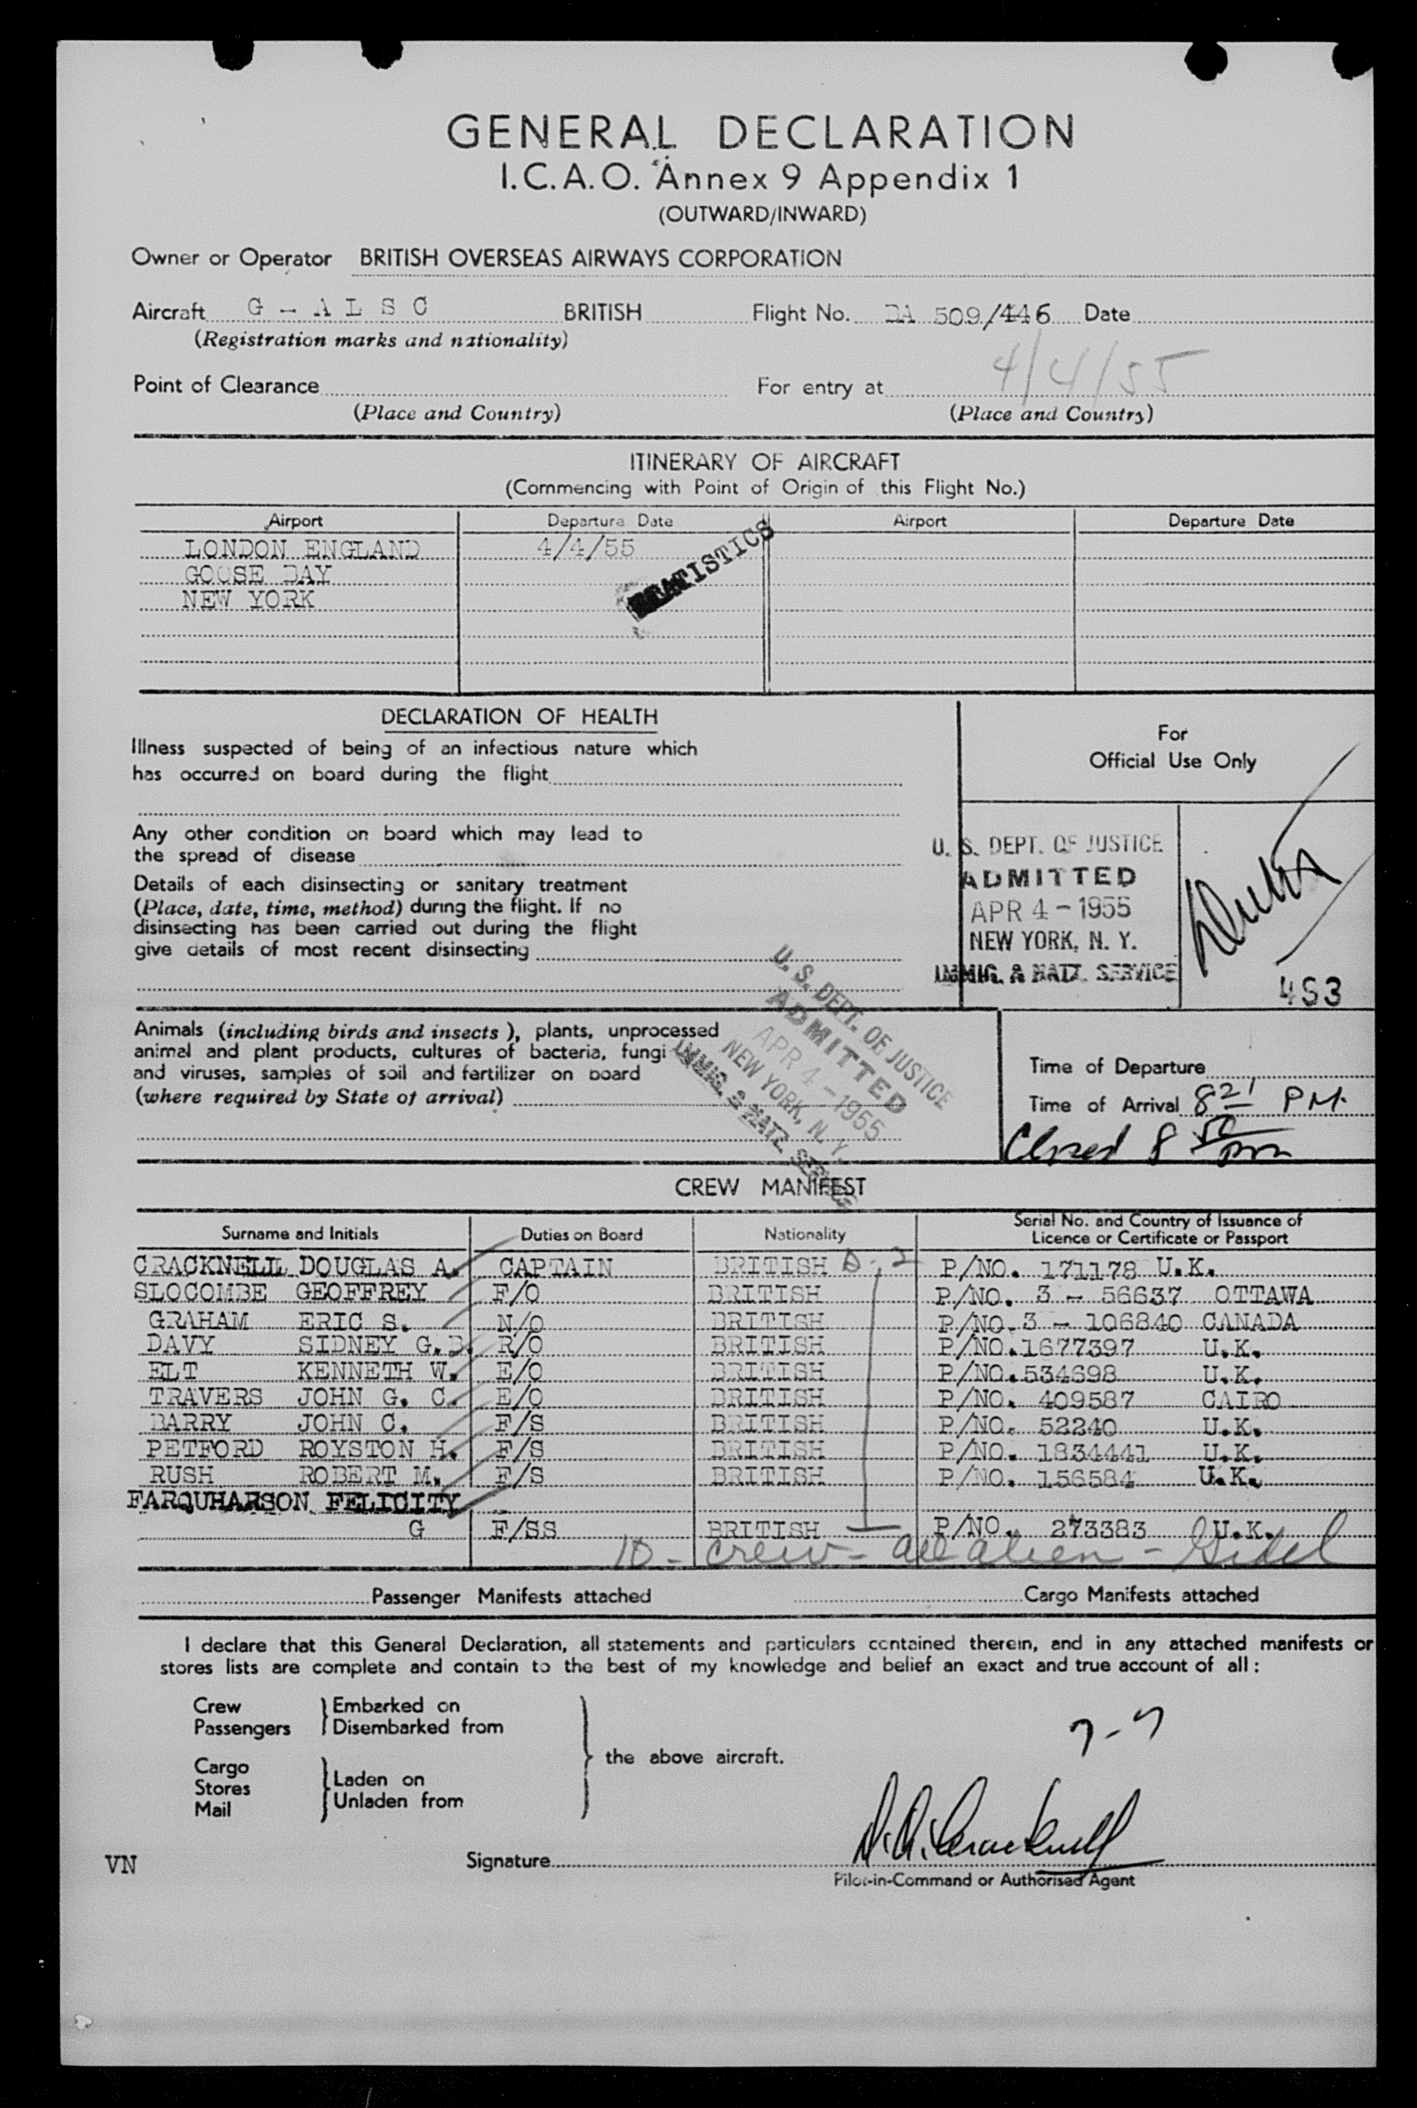 GENERAL DECLARATION
I.C.A.O. Annex 9 Appendix 1
(OUTWARD/INWARD)
Owner or Operator BRITISH OVERSEAS AIRWAYS CORPORATION
Aircraft G - A L S C BRITISH Flight No. BA 509/446 Date
(Registration marks and nationality)
4/4/55
Point of Clearance For entry at
(Place and Country) (Place and Country)
ITINERARY OF AIRCRAFT
(Commencing with Point of Origin of this Flight No.)
Airport Departure Date Airport Departure Date
LONDON ENGLAND 4/4/55
GOOSE BAY
NEW YORK
STATISTICS
DECLARATION OF HEALTH
Illness suspected of being of an infectious nature which
has occurred on board during the flight
Any other condition on board which may lead to
the spread of disease
Details of each disinsecting or sanitary treatment
(Place, date, time, method) during the flight. If no
disinsecting has been carried out during the flight
give details of most recent disinsecting
For
Official Use Only
U. S. DEPT. OF JUSTICE
ADMITTED
APR 4 - 1955
NEW YORK, N. Y.
IMMIG. & NATZ. SERVICE
453
Animals (including birds and insects), plants, unprocessed
animal and plant products, cultures of bacteria, fungi
and viruses, samples of soil and fertilizer on board
(where required by State of arrival)
U. S. DEPT. OF JUSTICE
ADMITTED
APR 4 - 1955
NEW YORK, N. Y.
IMMIG. & NATZ. SERVICE
Time of Departure
Time of Arrival 8 21 PM.
Closed 8 50 pm
CREW MANIFEST
Surname and Initials Duties on Board Nationality Serial No. and Country of Issuance of
Licence or Certificate or Passport
CRACKNELL DOUGLAS A. CAPTAIN BRITISH D-2 P/NO. 171178 U.K.
SLOCOMBE GEOFFREY F/O BRITISH P/NO. 3 - 56637 OTTAWA
GRAHAM ERIC S. N/O BRITISH P/NO. 3 - 106840 CANADA
DAVY SIDNEY G.B. R/O BRITISH P/NO. 1677397 U.K.
ELT KENNETH W. E/O BRITISH P/NO. 534698 U.K.
TRAVERS JOHN G. C. E/O BRITISH P/NO. 409587 CAIRO
BARRY JOHN C. F/S BRITISH P/NO. 52240 U.K.
PETFORD ROYSTON H. F/S BRITISH P/NO. 1834441 U.K.
RUSH ROBERT M. F/S BRITISH P/NO. 156584 U.K.
FARQUHARSON FELICITY
G F/SS BRITISH P/NO. 273383 U.K.
10 - crew - all alien -
Passenger Manifests attached Cargo Manifests attached
I declare that this General Declaration, all statements and particulars contained therein, and in any attached manifests or
stores lists are complete and contain to the best of my knowledge and belief an exact and true account of all:
Crew Embarked on
Passengers Disembarked from
the above aircraft.
Cargo
Stores Laden on
Mail Unladen from
7-7
VN Signature D. A. Cracknell
Pilot-in-Command or Authorised Agent